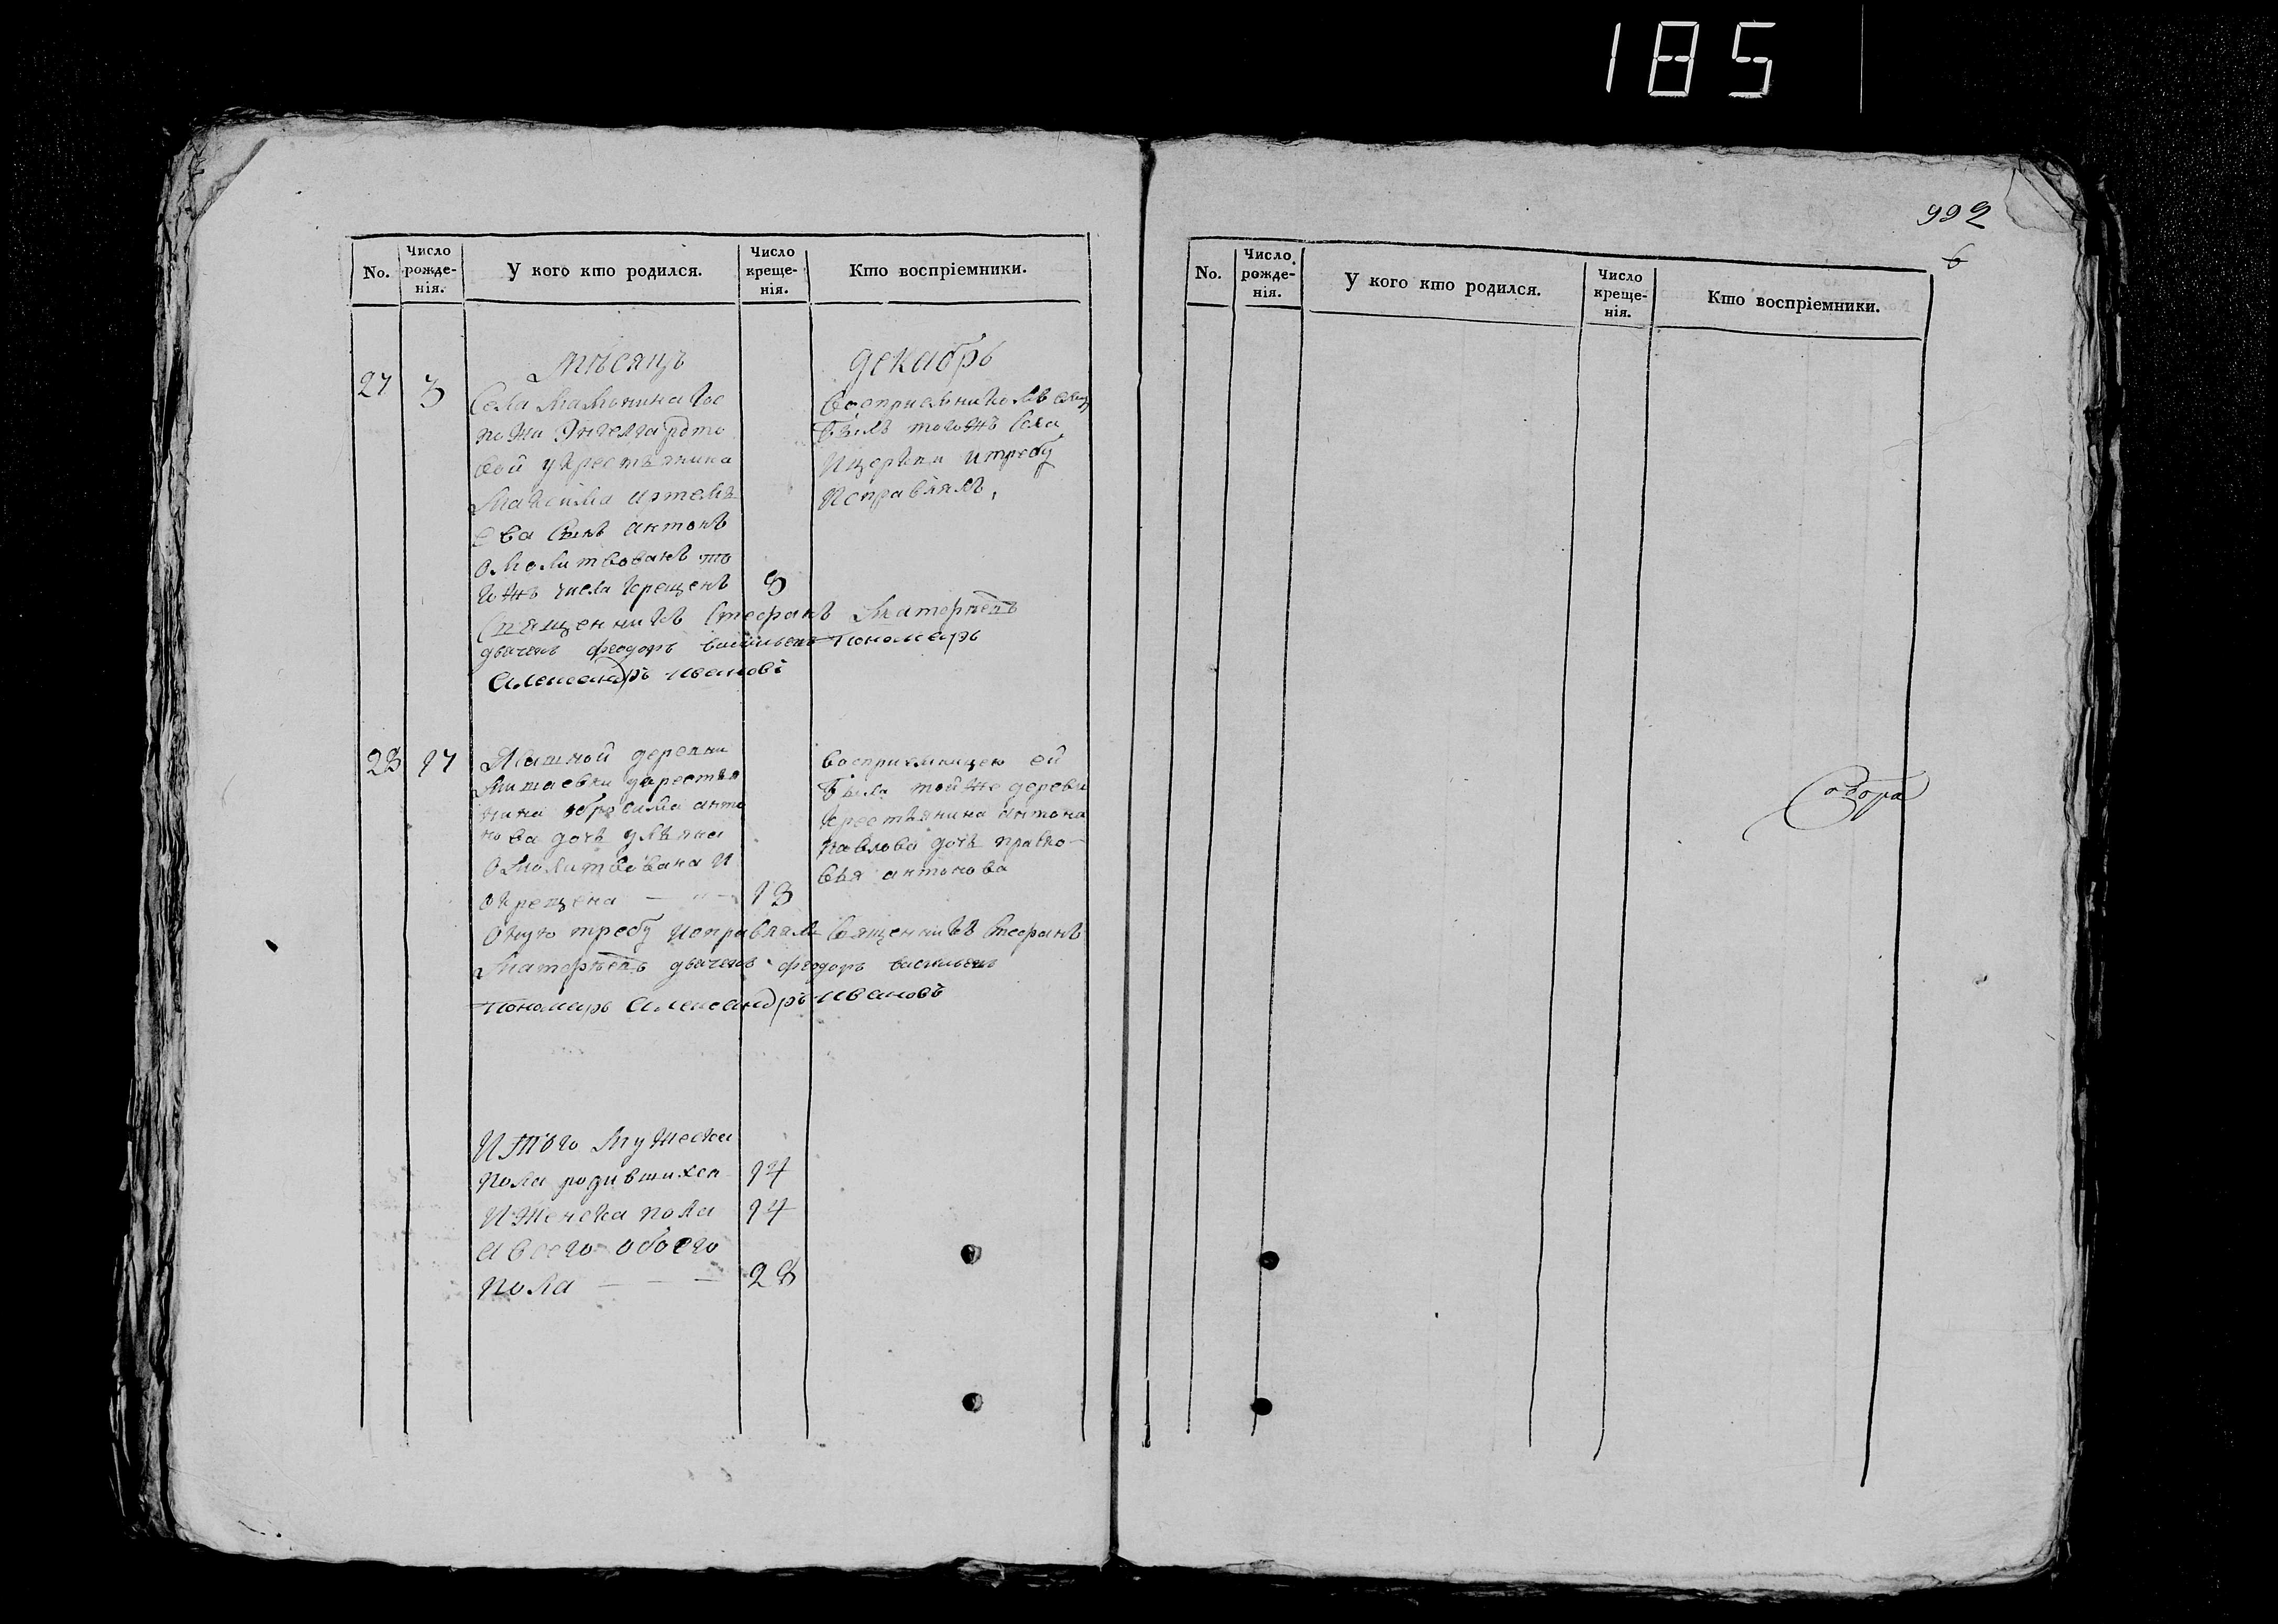 185
992
6
No.
Число рожде-нія.
У кого кто родился.
Число креще-нія.
Кто воспріемники.
мѣсяцъ декабрь
27 3
Села Мамонина гос
пожи Энгелгардто
вой укрестьянина
Максима Артемь
ева сынъ антонъ
омолитвованъ то
гожъ числа крещенъ 8
Восприемникомъ ему
былъ тогожъ села
требу
исправлялъ,
Священникъ Стефанъ
дьячекъ феодоръ васильевъ пономарь
Александръ Ивановъ
28 17
деревни
укрестья
нина ефросима анто
нова дочь ульяна
Омолитвована и
окрещена — „ — 18
восприемницею ей
была тойже деревни
крестьянина антона
павлова дочь праско-
вья антонова
Оную требу исправлялъ Священникъ Стефанъ
дьячекъ феодоръ васильевъ
пономарь Александръ Ивановъ
Итого мужеска
пола родившихся 14
И женска пола 14
а всего обоего
пола — — — 28
No.
Число рожде-нія.
У кого кто родился.
Число креще-нія.
Кто воспріемники.
Собора